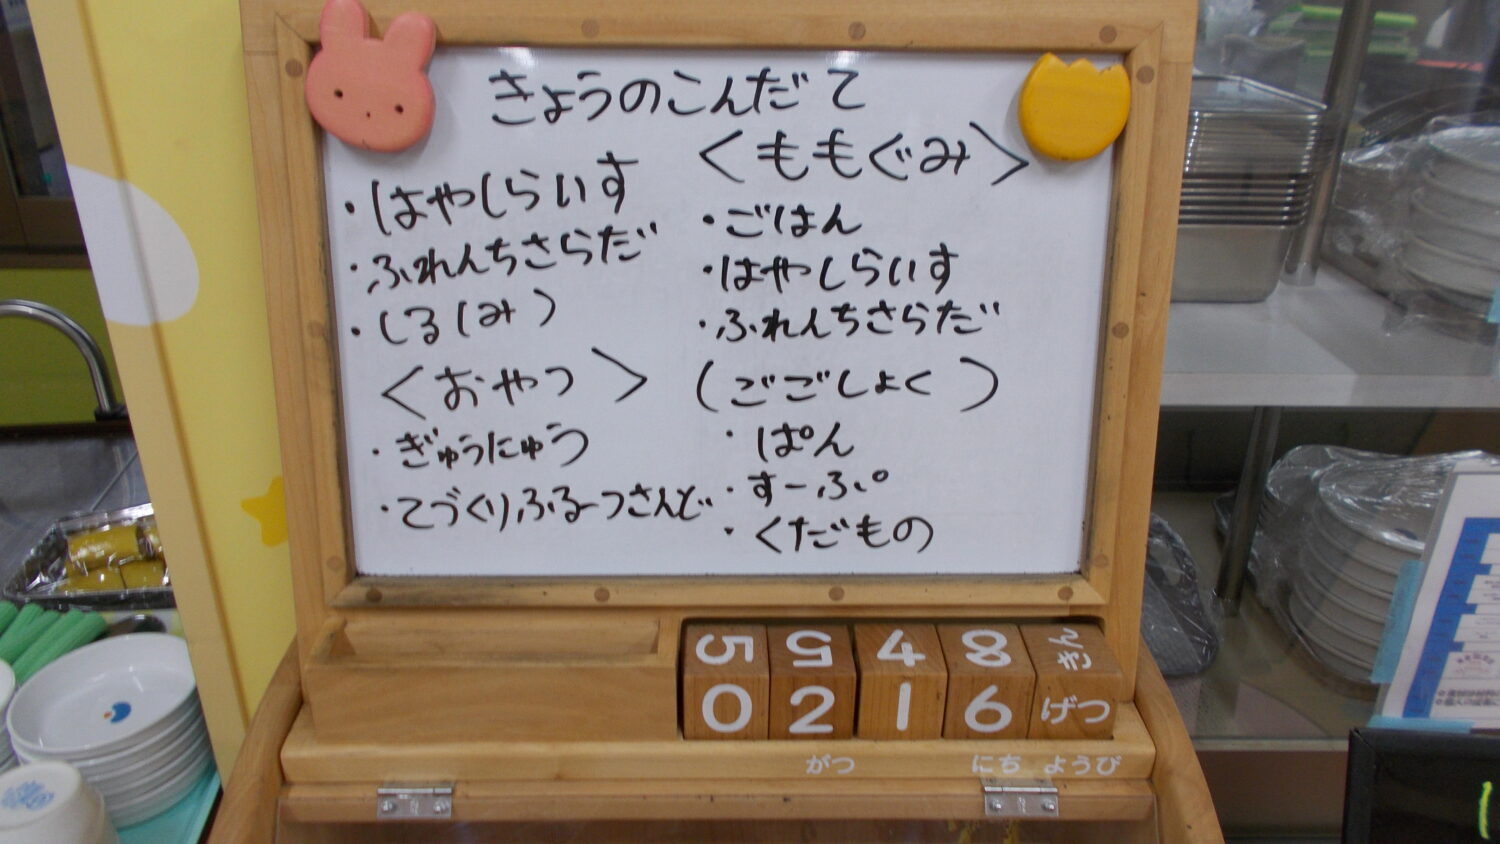 きょうのこんだて
・はやしらいす
・ふれんちさらだ
・しるしみ)
<おやつ>
・ぎゅうにゅう
・てづくりふるーつさんど
<ももぐみ>
・ごはん
・はやしらいす
・ふれんちさらだ
(ごごしょく)
・ぱん
・すーぷ
・くだもの
5 5 4 8 きん
0 2 1 6 げつ
がつ にち ようび